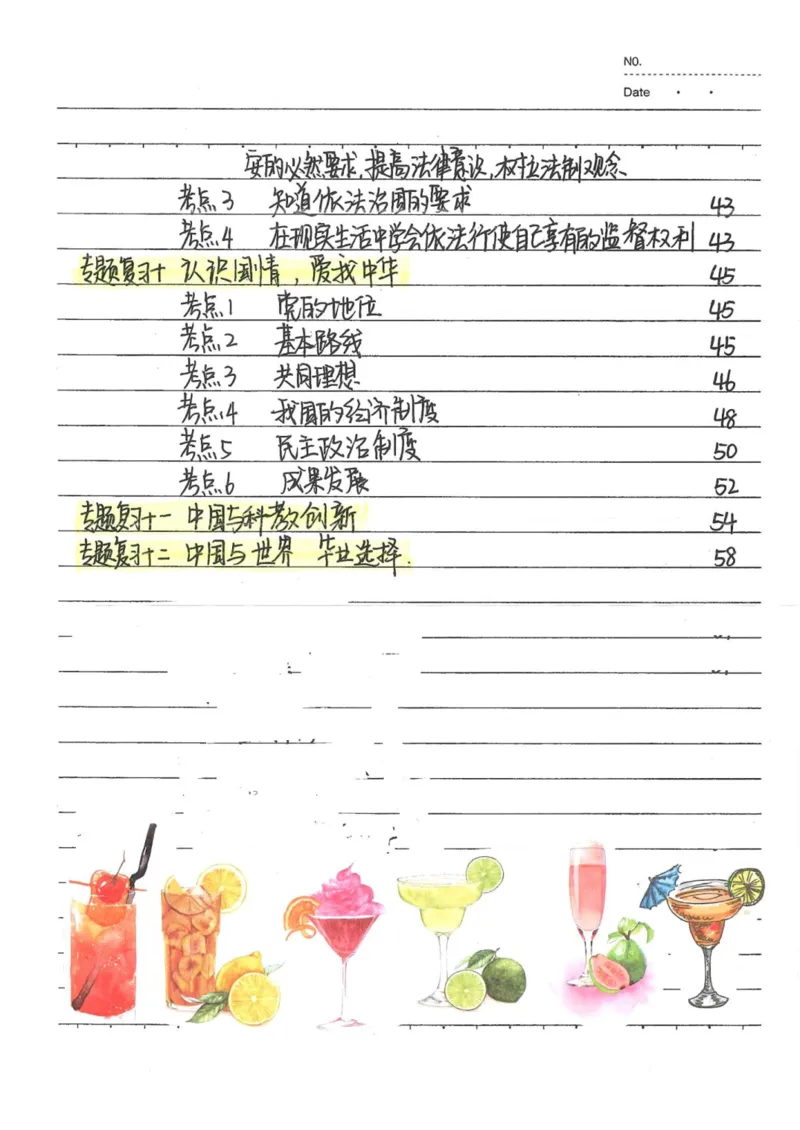 NO.
Date
安的必然要求,提高法律意识,树立法制观念
考点3 知道依法治国的要求 43
考点4 在现实生活中学会依法行使自己享有的监督权利 43
专题复习十 认识国情,爱我中华 45
考点1 党的地位 45
考点2 基本路线 45
考点3 共同理想 46
考点4 我国的经济制度 48
考点5 民主政治制度 50
考点6 成果发展 52
专题复习十一 中国与科教创新 54
专题复习十二 中国与世界 毕业选择. 58